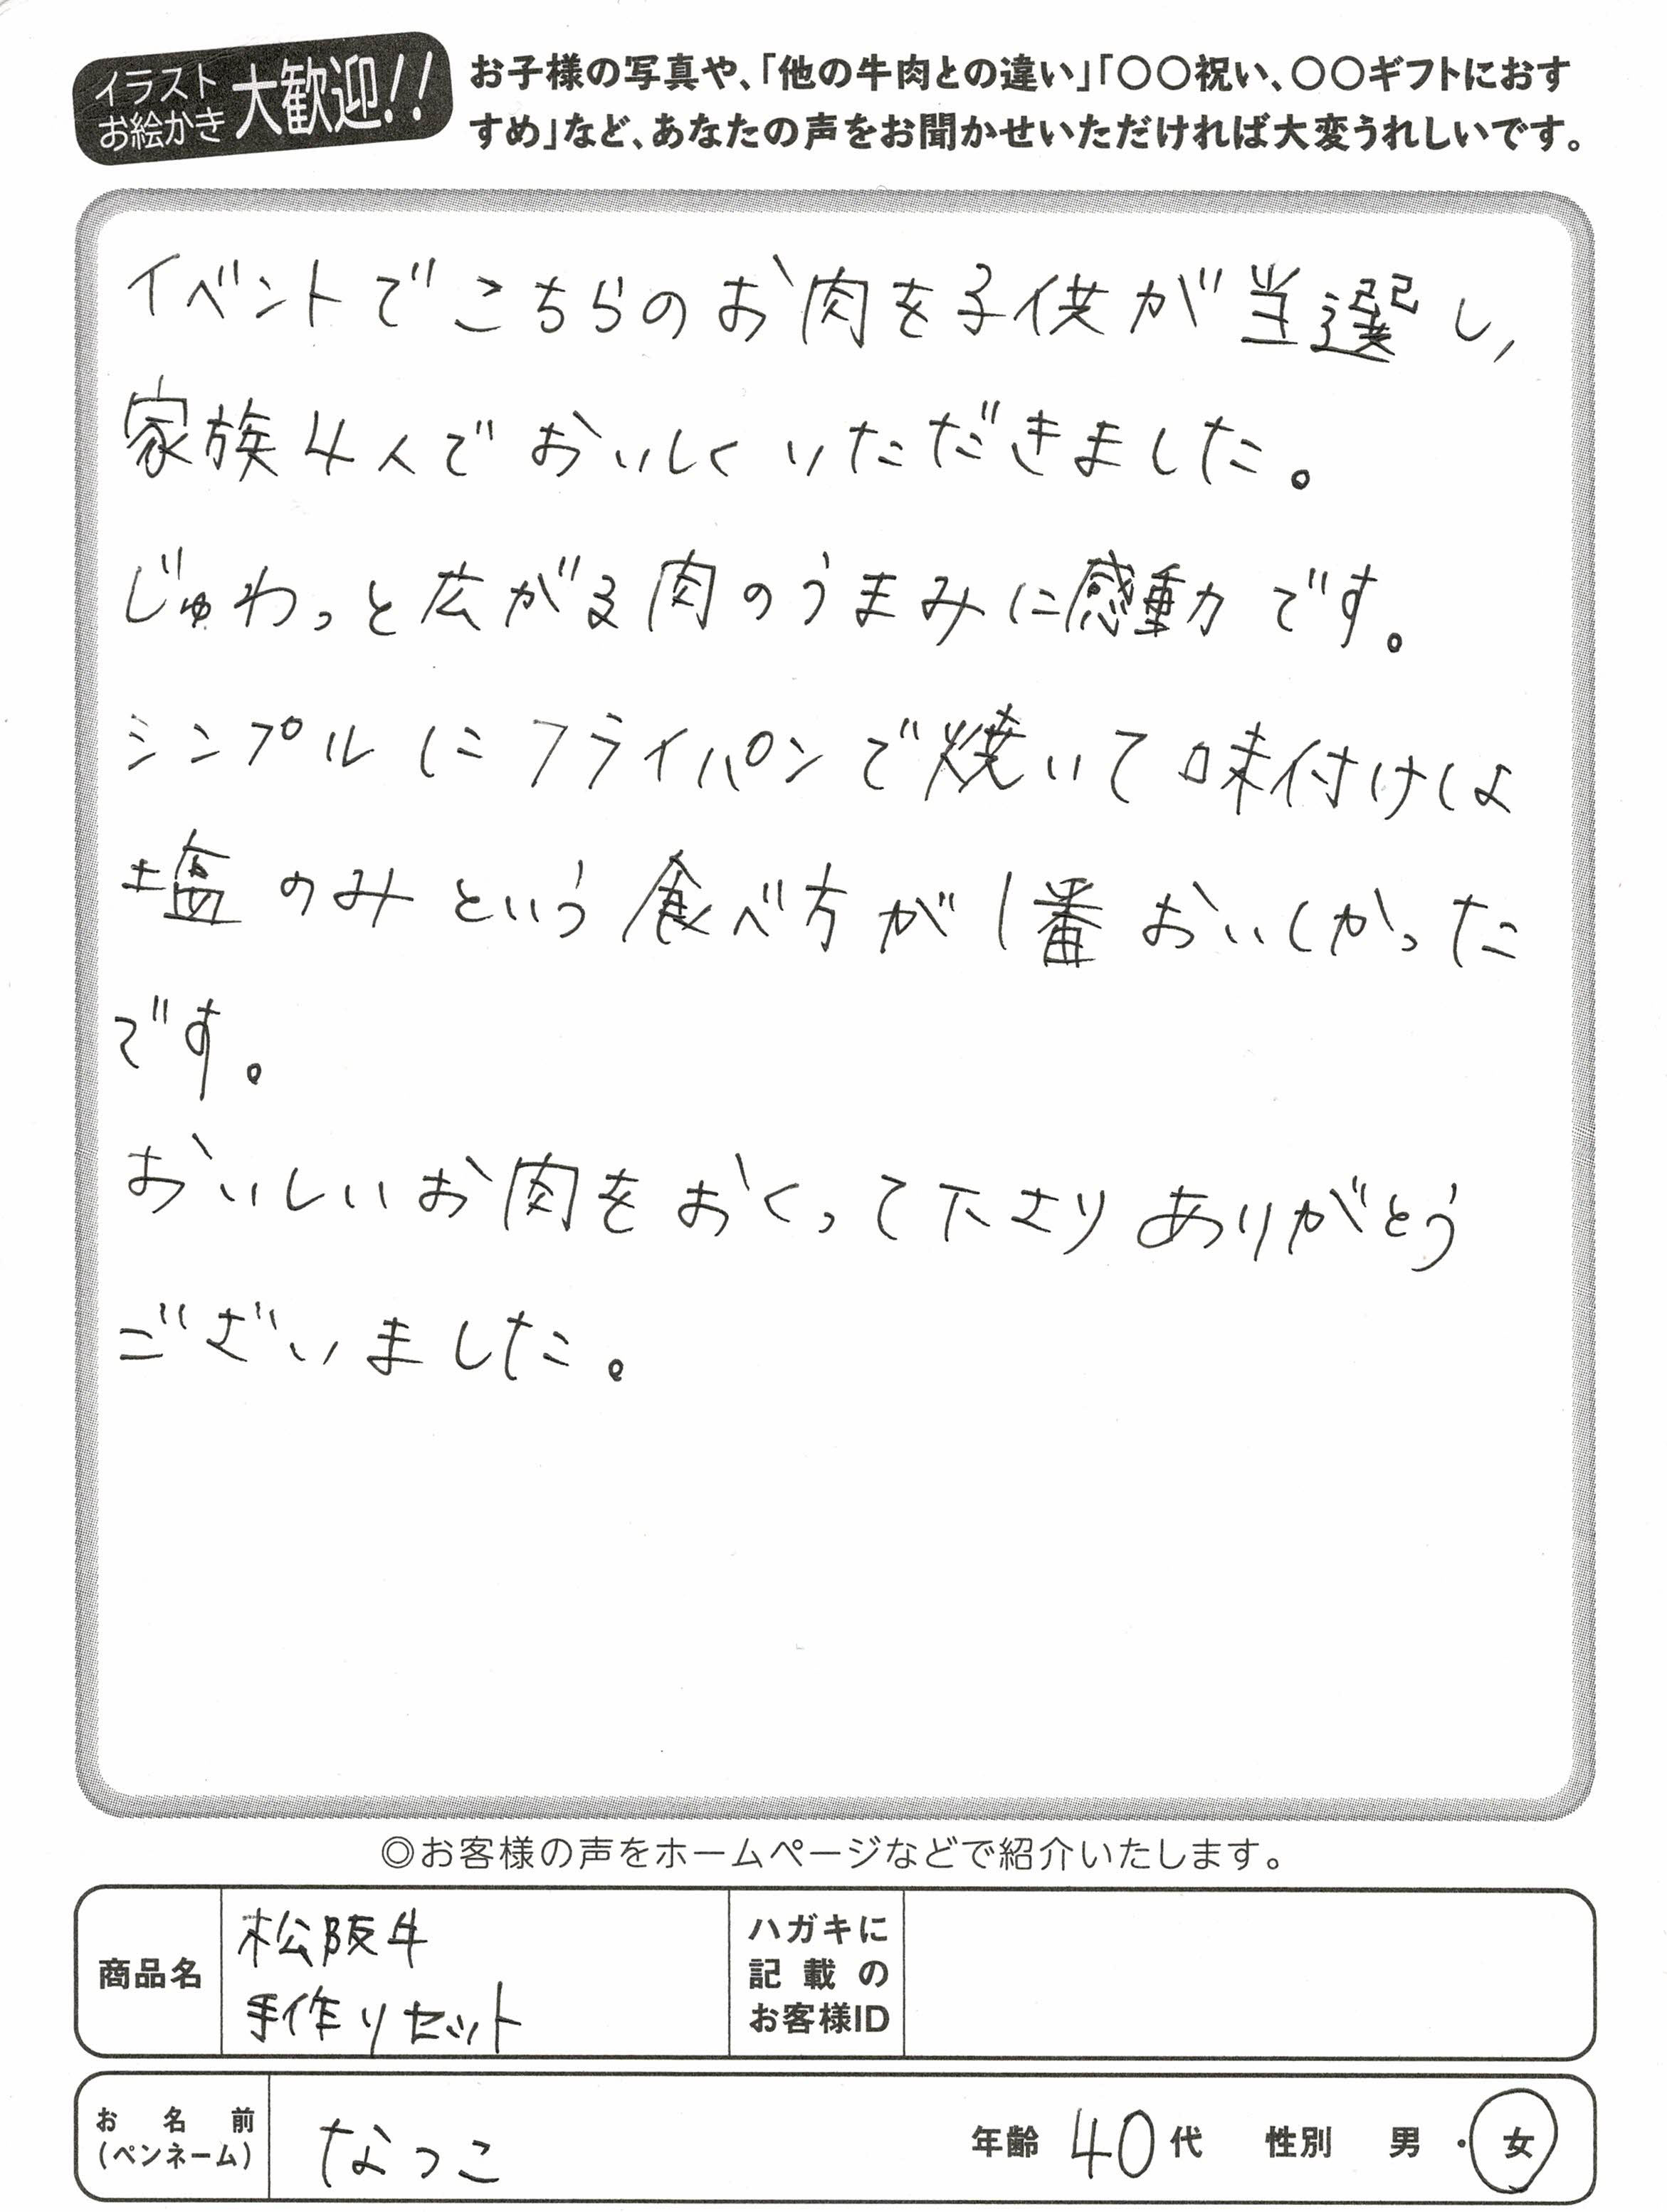 イラスト
お絵かき
大歓迎!!
お子様の写真や、「他の牛肉との違い」「〇〇祝い、〇〇ギフトにおす
すめ」など、あなたの声をお聞かせいただければ大変うれしいです。
イベントでこちらのお肉を子供が当選し、
家族4人でおいしくいただきました。
じゅわっと広がる肉のうまみに感動です。
シンプルにフライパンで焼いて味付けは
塩のみという食べ方が1番おいしかった
です。
おいしいお肉をおくって下さりありがとう
ございました。
◎お客様の声をホームページなどで紹介いたします。
商品名
松阪牛
手作りセット
ハガキに
記載の
お客様ID
お名前
(ペンネーム)
なっこ
年齢 40代 性別 男・女